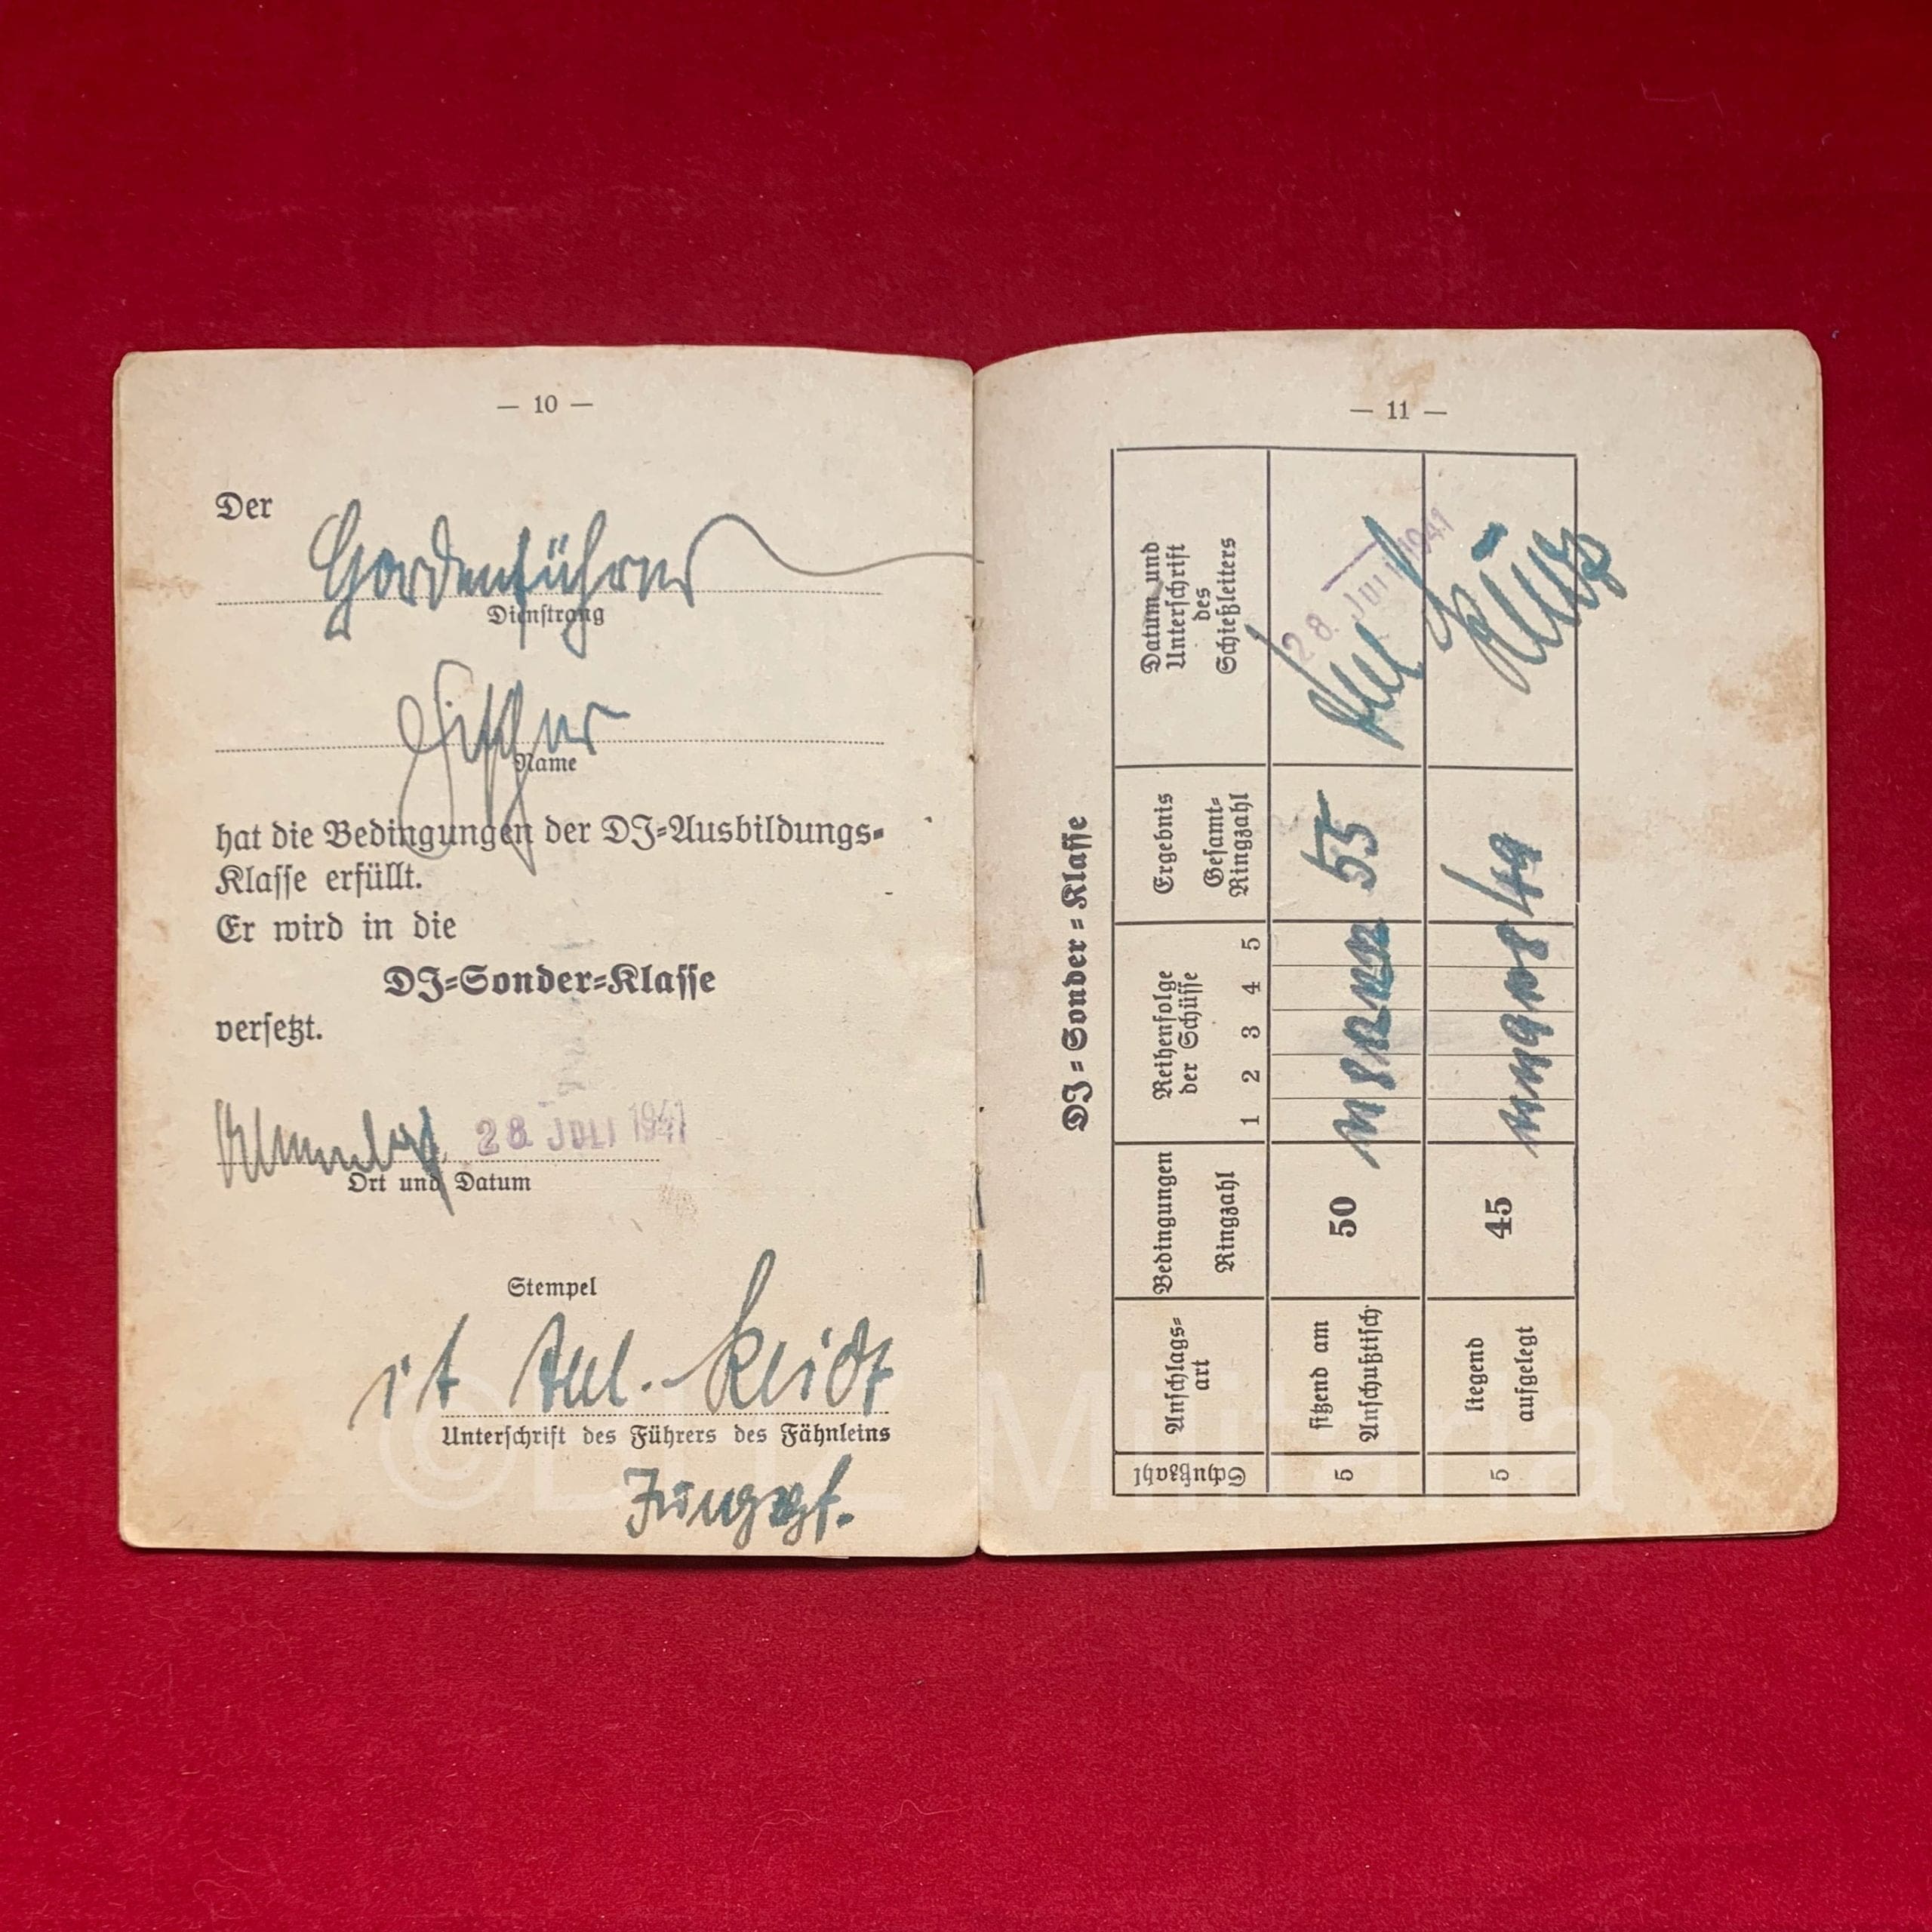 — 10 —
Der
Hordenführer
Dienstrang
Fischer
Name
hat die Bedingungen der DJ=Ausbildungs=
Klasse erfüllt.
Er wird in die
DJ=Sonder=Klasse
versetzt.
28. JULI 1941
Ort und Datum
Stempel
Unterschrift des Führers des Fähnleins
Jungzgf.
— 11 —
DJ = Sonder = Klasse
Schußzahl
Anschlags=
art
Bedingungen
Ringzahl
Reihenfolge
der Schüsse
1 2 3 4 5
Ergebnis
Gesamt=
Ringzahl
Datum und
Unterschrift
des
Schießleiters
5
sitzend am
Anschußtisch
50
11 8 12 12 12
55
28. JULI 1941
5
liegend
aufgelegt
45
11 11 9 10 8
49
© Militaria